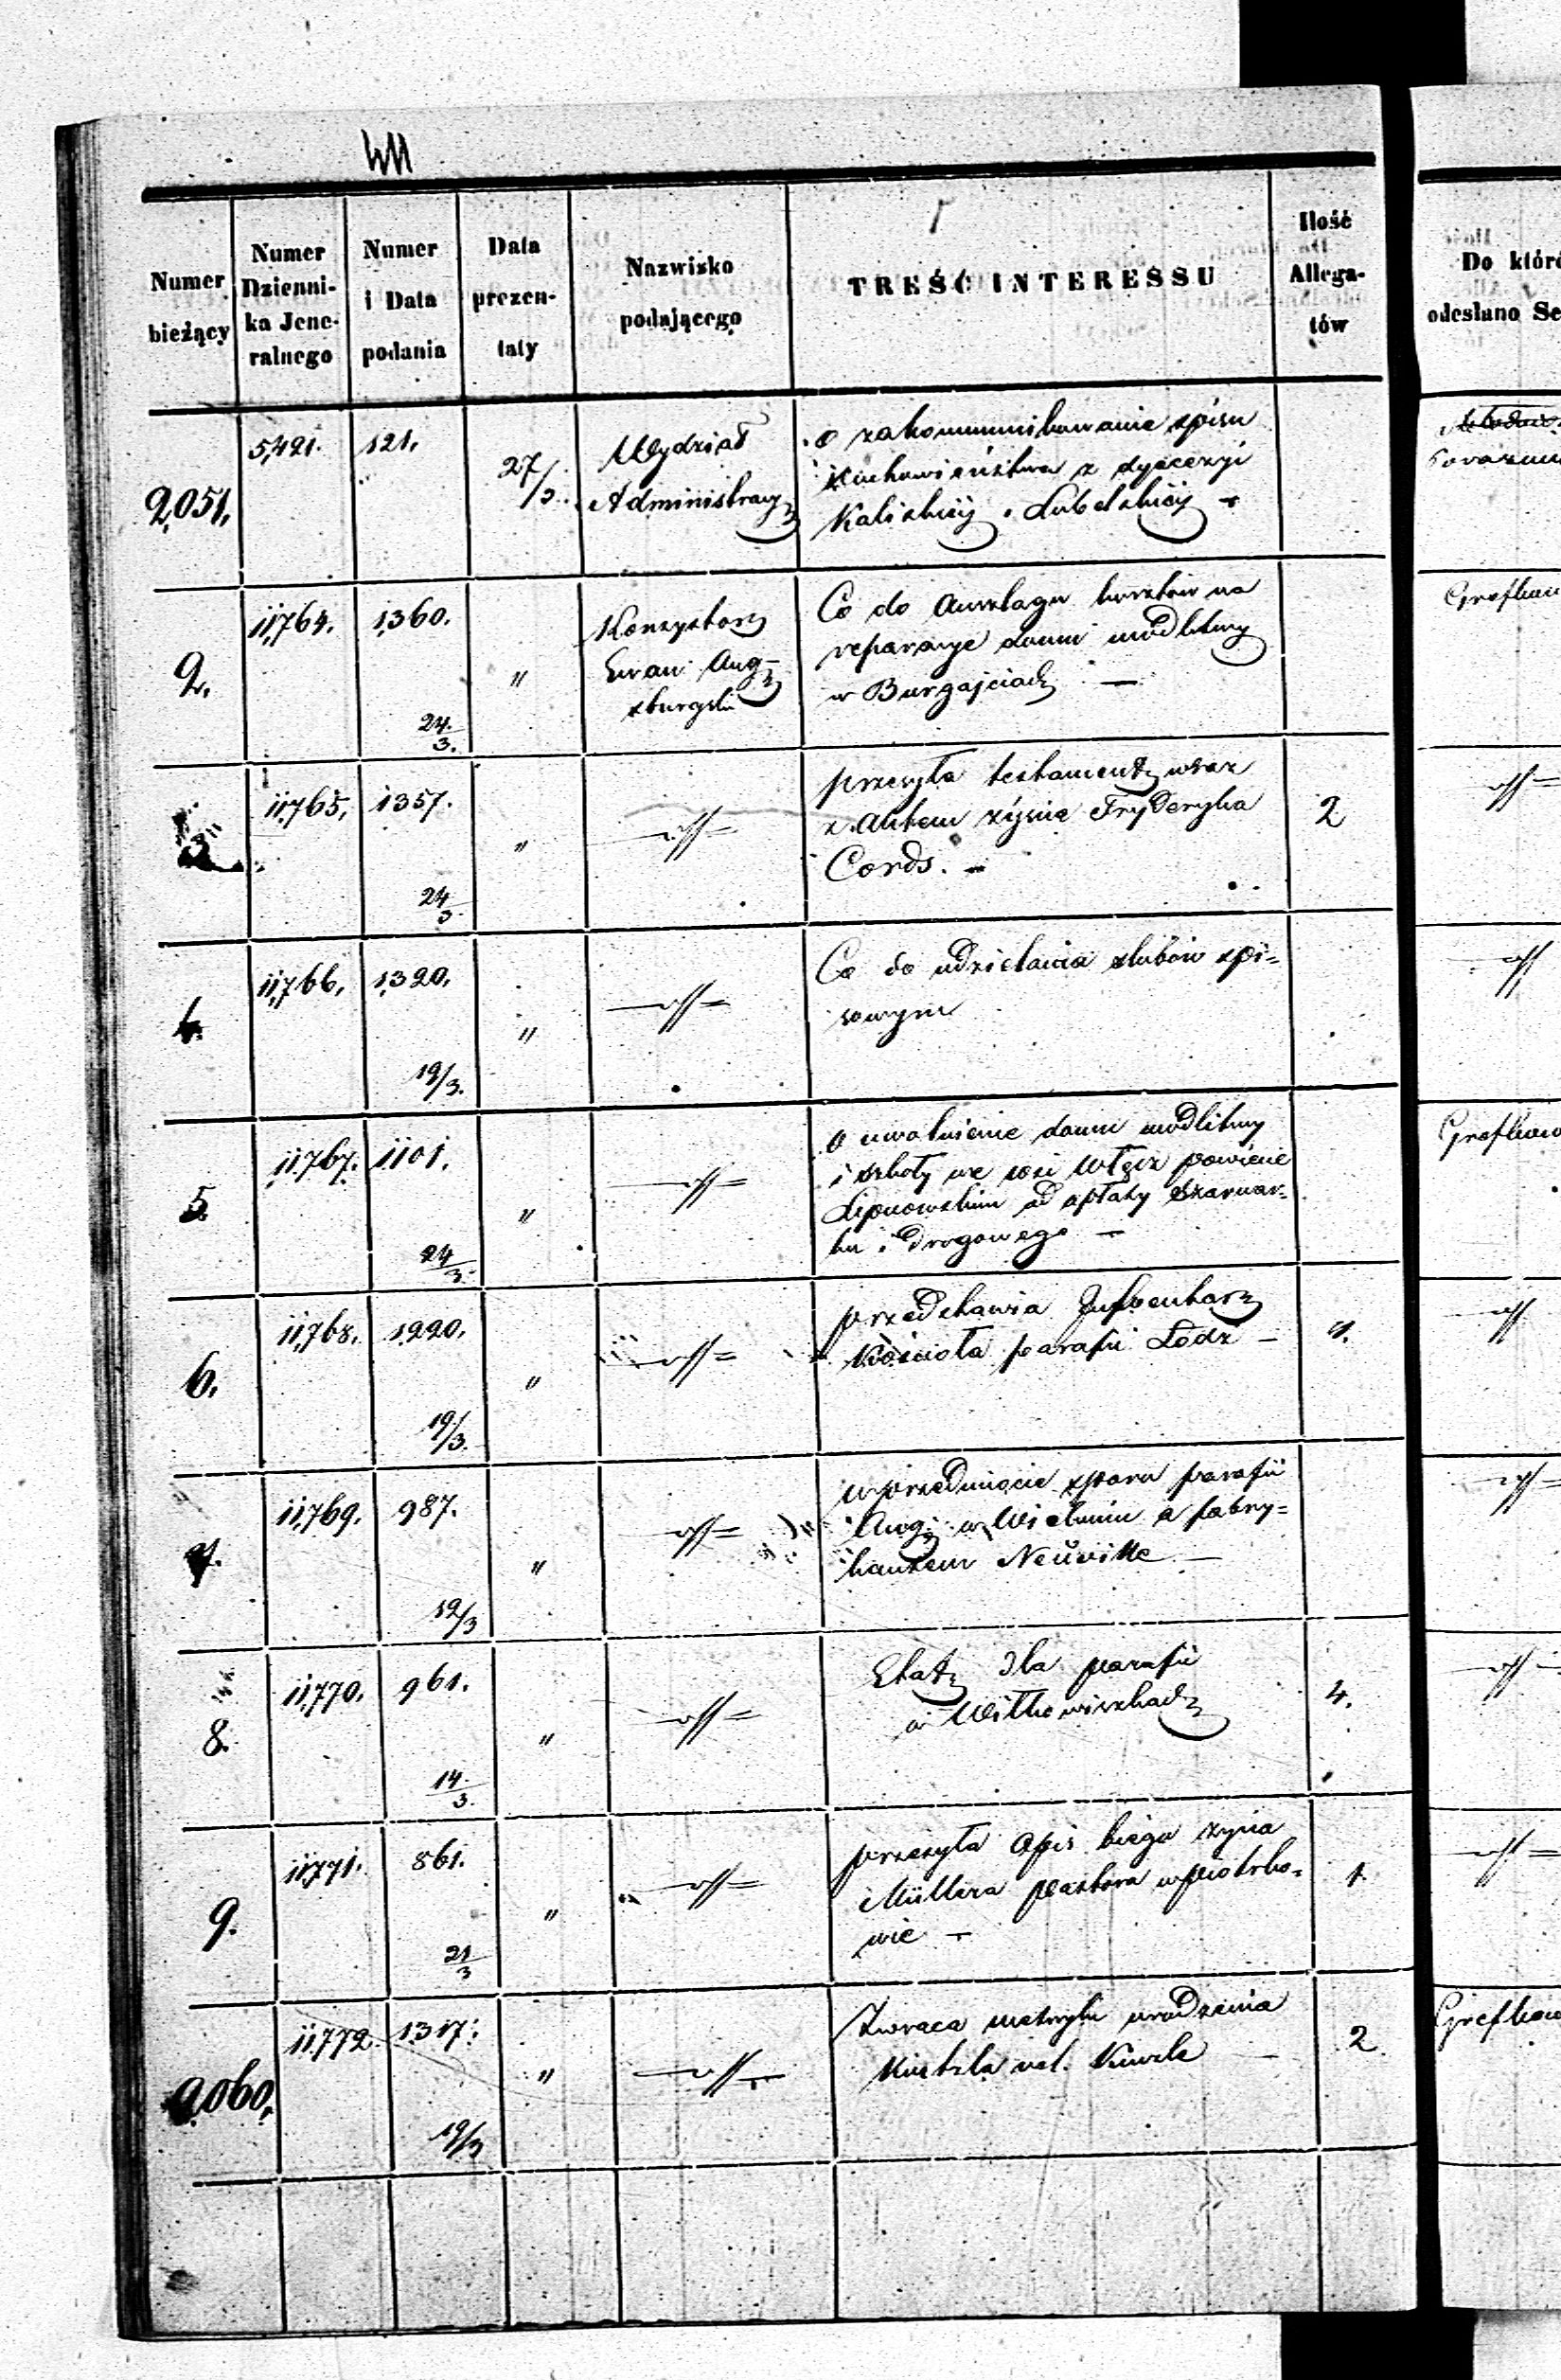 Numer bieżący | Numer Dziennika Jeneralnego | Numer i Data podania | Data prezentaty | Nazwisko podającego | TREŚĆ INTERESSU | Ilość Allegatów
Do któr
odesłano Se
2,051. 5,421. 121. 27/3.
Wydział
Administracyj
o zakommunikowanie spisu
Duchowieństwa z dyecezyi
Kaliskiéj i Lubelskiéj
2. 11,764. 1,360. 24/3. "
Konsystorz
Ewan: Aug-
sburgski
Co do Anszlagu kosztów na
reparacye domu modlitwy
w Burgajciach —
Grefkow
3 11,765. 1357. 24/3. "
przesyła testamenta wraz
z Aktem zejścia Fryderyka
Cords. —
2
4. 11,766. 1,320. 19/3. "
Co do udzielania ślubów spi=
sowym
5. 11,767. 1101. 24/3. "
o uwolnienie domu modlitwy
i szkoły we wsi Włęcz powiecie
Lipnowskim od opłaty Szarwar-
ku i Drogowego —
Grefkow
6. 11,768. 1220. 19/3. "
przedstawia Inwentarz
Kościoła parafii Łódź —
7. 11,769. 987. 12/3 "
w przedmiocie sporu parafii
Aug: w Wieluniu a fabry=
kantem Neuville —
8. 11,770. 961. 14/3. "
Etat dla parafii
w Wiłkowiszkach
4.
9. 11771. 861. 21/3 "
przesyła opis biegu życia
Müllera pastora w Piotrko=
wie —
1.
2,060. 11772. 1,317. 19/3 "
Zwraca metrykę urodzenia
vel.
2
Grefkow